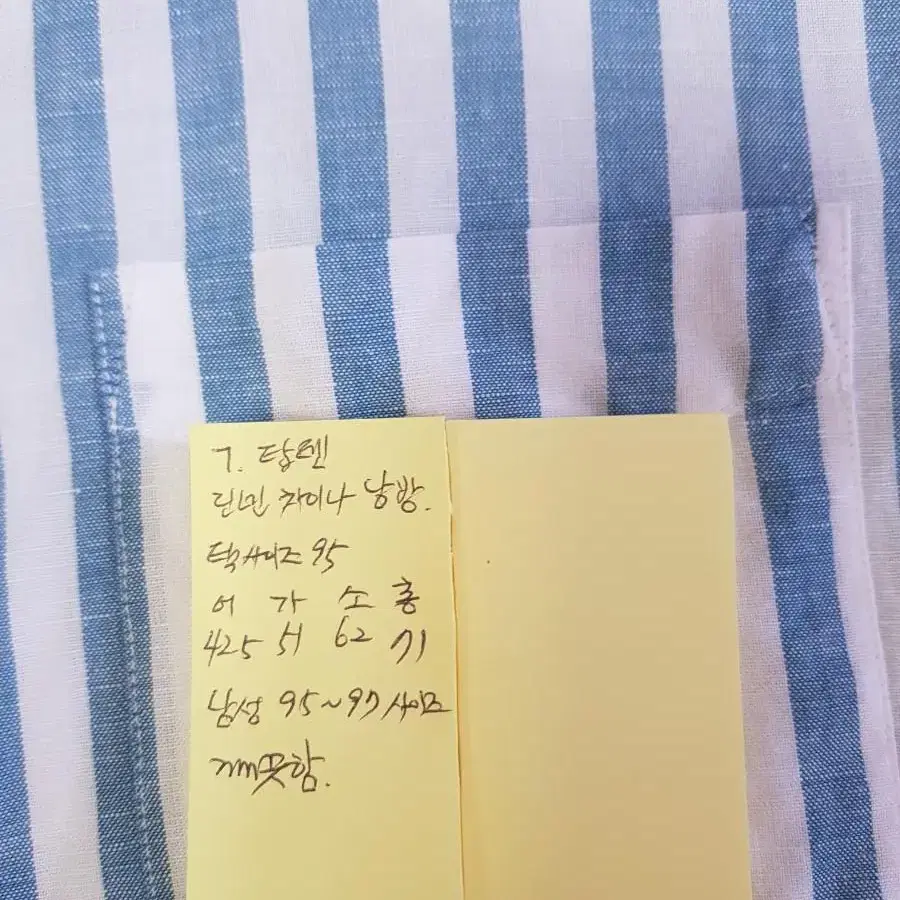 7. 탑텐
린넨 차이나 남방.
텍사이즈 95
어 가 소 총
425 51 62 71
남성 95~97사이즈
깨끗함.